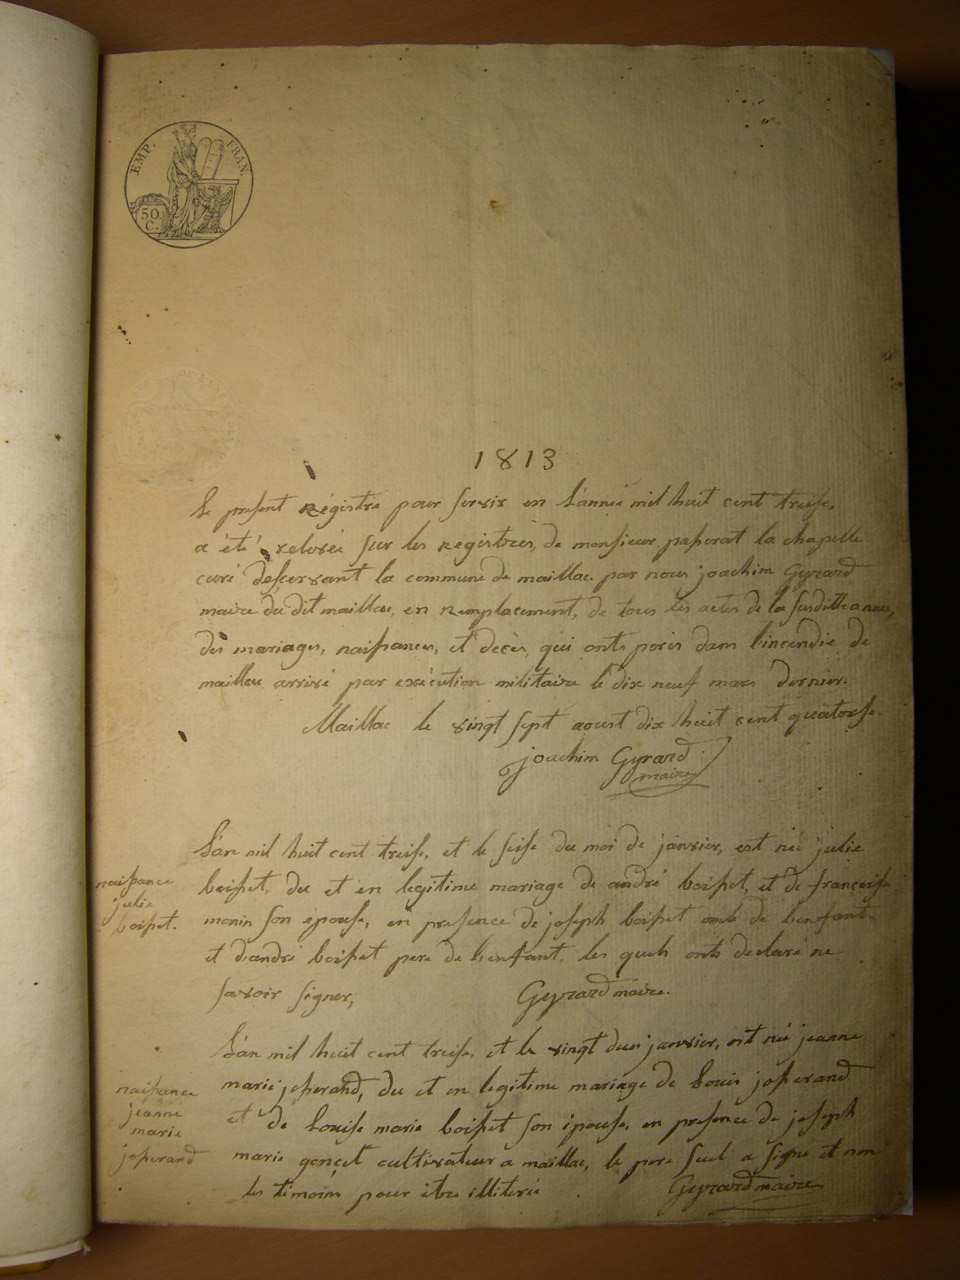 EMP. FRAN.
50
C.
1813
Le present Régistre pour servir en l'année mil huit cent treise,
a été relevée sur les registres, de monsieur passerat la chapelle
curé desservant la commune de maillac par nous joachim Gyrard
maire du dit maillac, en remplacement, de tous les actes de la susditte année,
des mariages, naissances, et décès, qui onts peris dans l'incendie de
maillac arrivé par exécution militaire le dix neuf mars dernier.
Maillac le vingt sept aoust dix huit cent quatorse.
joachim Gyrard
maire
L'an mil huit cent treise, et le seise du moi de janvier, est née julie
boisset, du et en legitime mariage de andré boisset, et de françoise
monin son épouse, en presence de joseph boisset oncle de l'enfant
et d'andré boisset pere de l'enfant, les quels onts declaré ne
savoir signer,
Gyrard maire.
naissance
julie
boisset.
L'an mil huit cent treise, et le vingt deux janvier, est née jeanne
marie josserand, du et en legitime mariage de Louis josserand
et de Louise marie boisset son épouse, en presence de joseph
marie gonçet cultivateur a maillac, le pere seul a signé et non
les témoins pour être illiteré
Gyrard maire
naissance
jeanne
marie
josserand